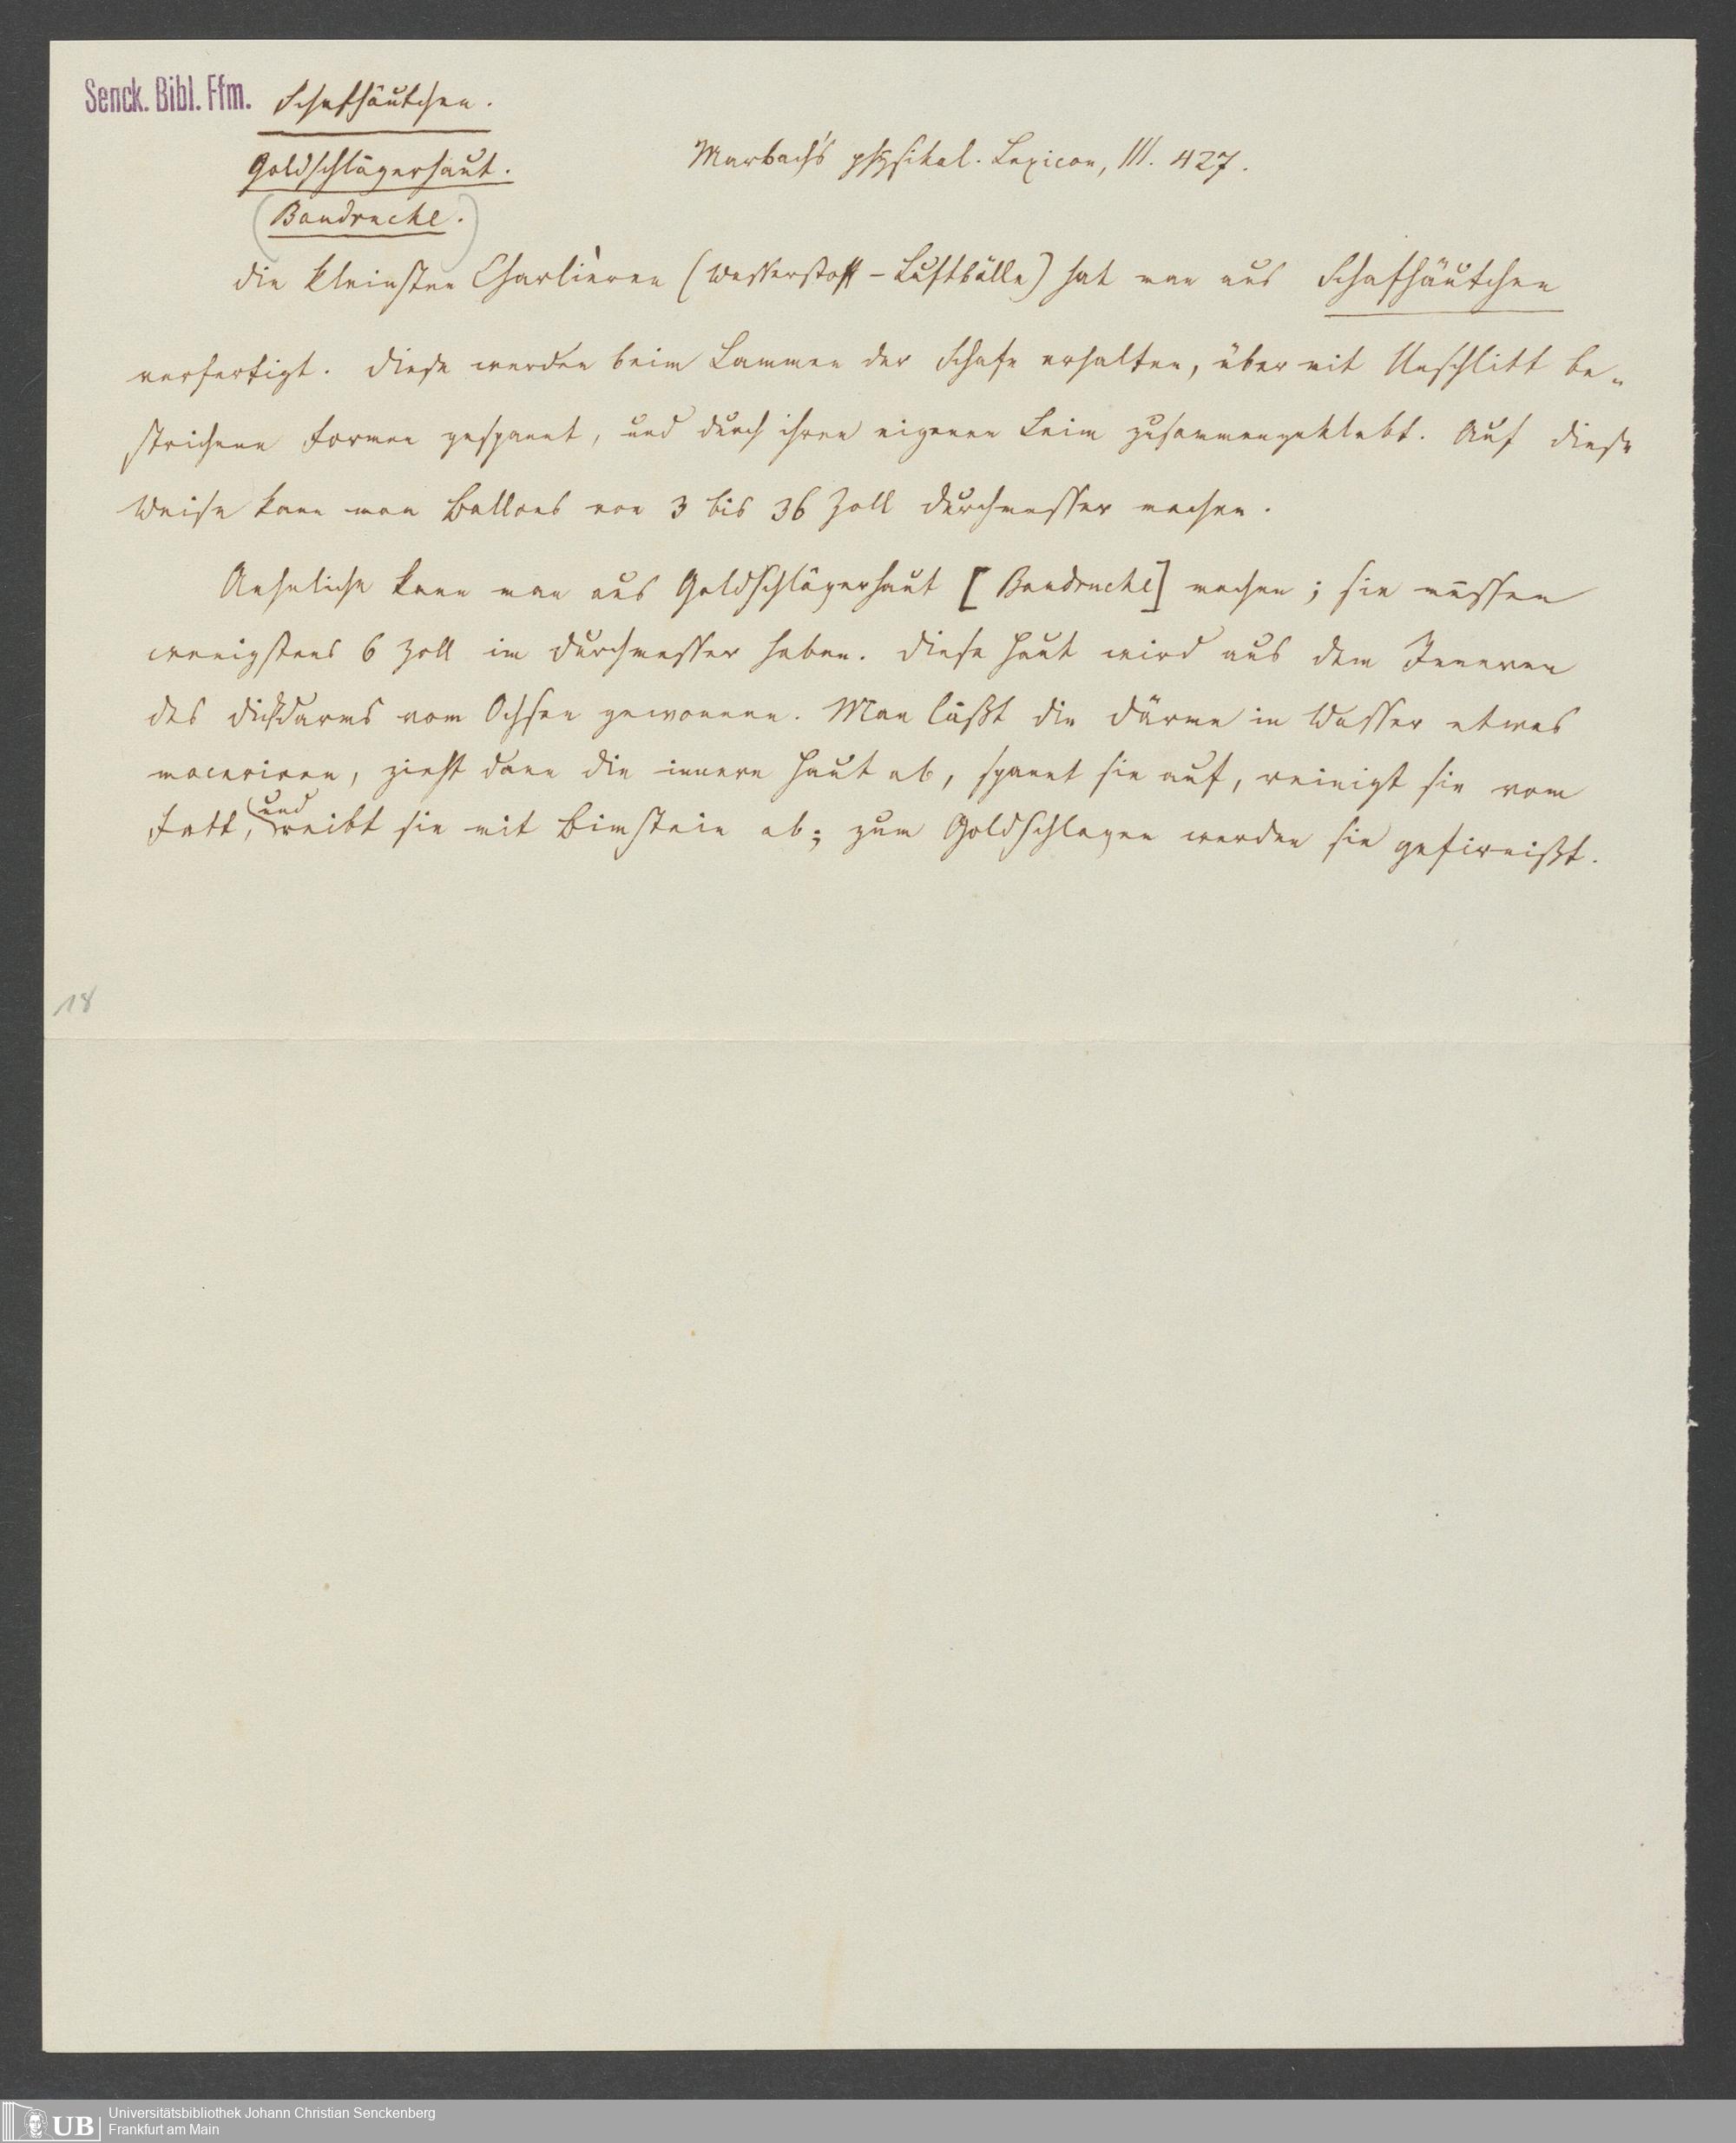 Senck. Bibl. Ffm.
Schafhäutchen.
Goldschlägerhaut.
(Baudruche.)
Marbach's physikal. Lexicon, III. 427.
Die kleinsten Charlièren (Wasserstoff-Luftbälle) hat man aus Schafhäutchen
verfertigt. Diese werden beim Lammen der Schafe erhalten, über mit Unschlitt be-
strichene Formen gespannt, und durch ihren eigenen Leim zusammengeklebt. Auf diese
Weise kann man Ballons von 3 bis 36 Zoll Durchmesser machen.
Aehnliche kann man aus Goldschlägerhaut [Baudruche] machen; sie müssen
wenigstens 6 Zoll im Durchmesser haben. Diese Haut wird aus dem Inneren
des Dickdarms vom Ochsen gewonnen. Man läßt die Därme in Wasser etwas
maceriren, zieht dann die innere Haut ab, spannt sie auf, reinigt sie vom
Fett, und reibt sie mit Bimstein ab; zum Goldschlagen werden sie gefirnißt.
18
UB
Universitätsbibliothek Johann Christian Senckenberg
Frankfurt am Main